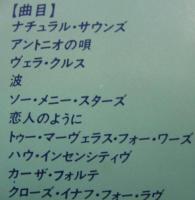 【曲目】
ナチュラル・サウンズ
アントニオの唄
ヴェラ・クルス
波
ソー・メニー・スターズ
恋人のように
トゥー・マーヴェラス・フォー・ワーズ
ハウ・インセンシティヴ
カーザ・フォルテ
クローズ・イナフ・フォー・ラヴ